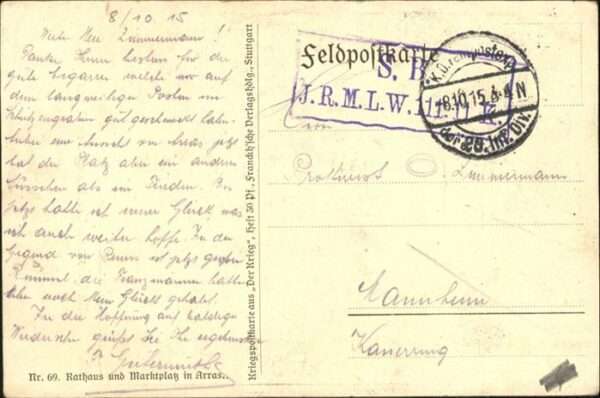 8/10.15
Werter Herr Zimmermann!
Danke Ihnen bestens für die
gute Zigarren welche mir auf
dem langweiligen Posten im
Schützengraben gut geschmeckt haben.
eine Ansicht von Arras jetzt
hat der Platz aber ein anderes
als im Frieden. Bis
jetzt hatte ich immer Glück was
ich auch weiter hoffe. In der
Gegend von ist jetzt großer
die Franzmänner
noch kein Glück gehabt.
In der Hoffnung auf baldiges
Wiedersehn grüßt Sie Ihr ergebener
Nr. 69. Rathaus und Marktplatz in Arras.
Kriegspostkarte aus „Der Krieg“, Heft 30 Pf., Franckh'sche Verlagshdlg., Stuttgart
Feldpostkarte
S. B.
J.R.M.L.W. 111. K.
8.10.15. 3-4 N
der 29. Inf. Div.
Prokurist Zimmermann
Mannheim